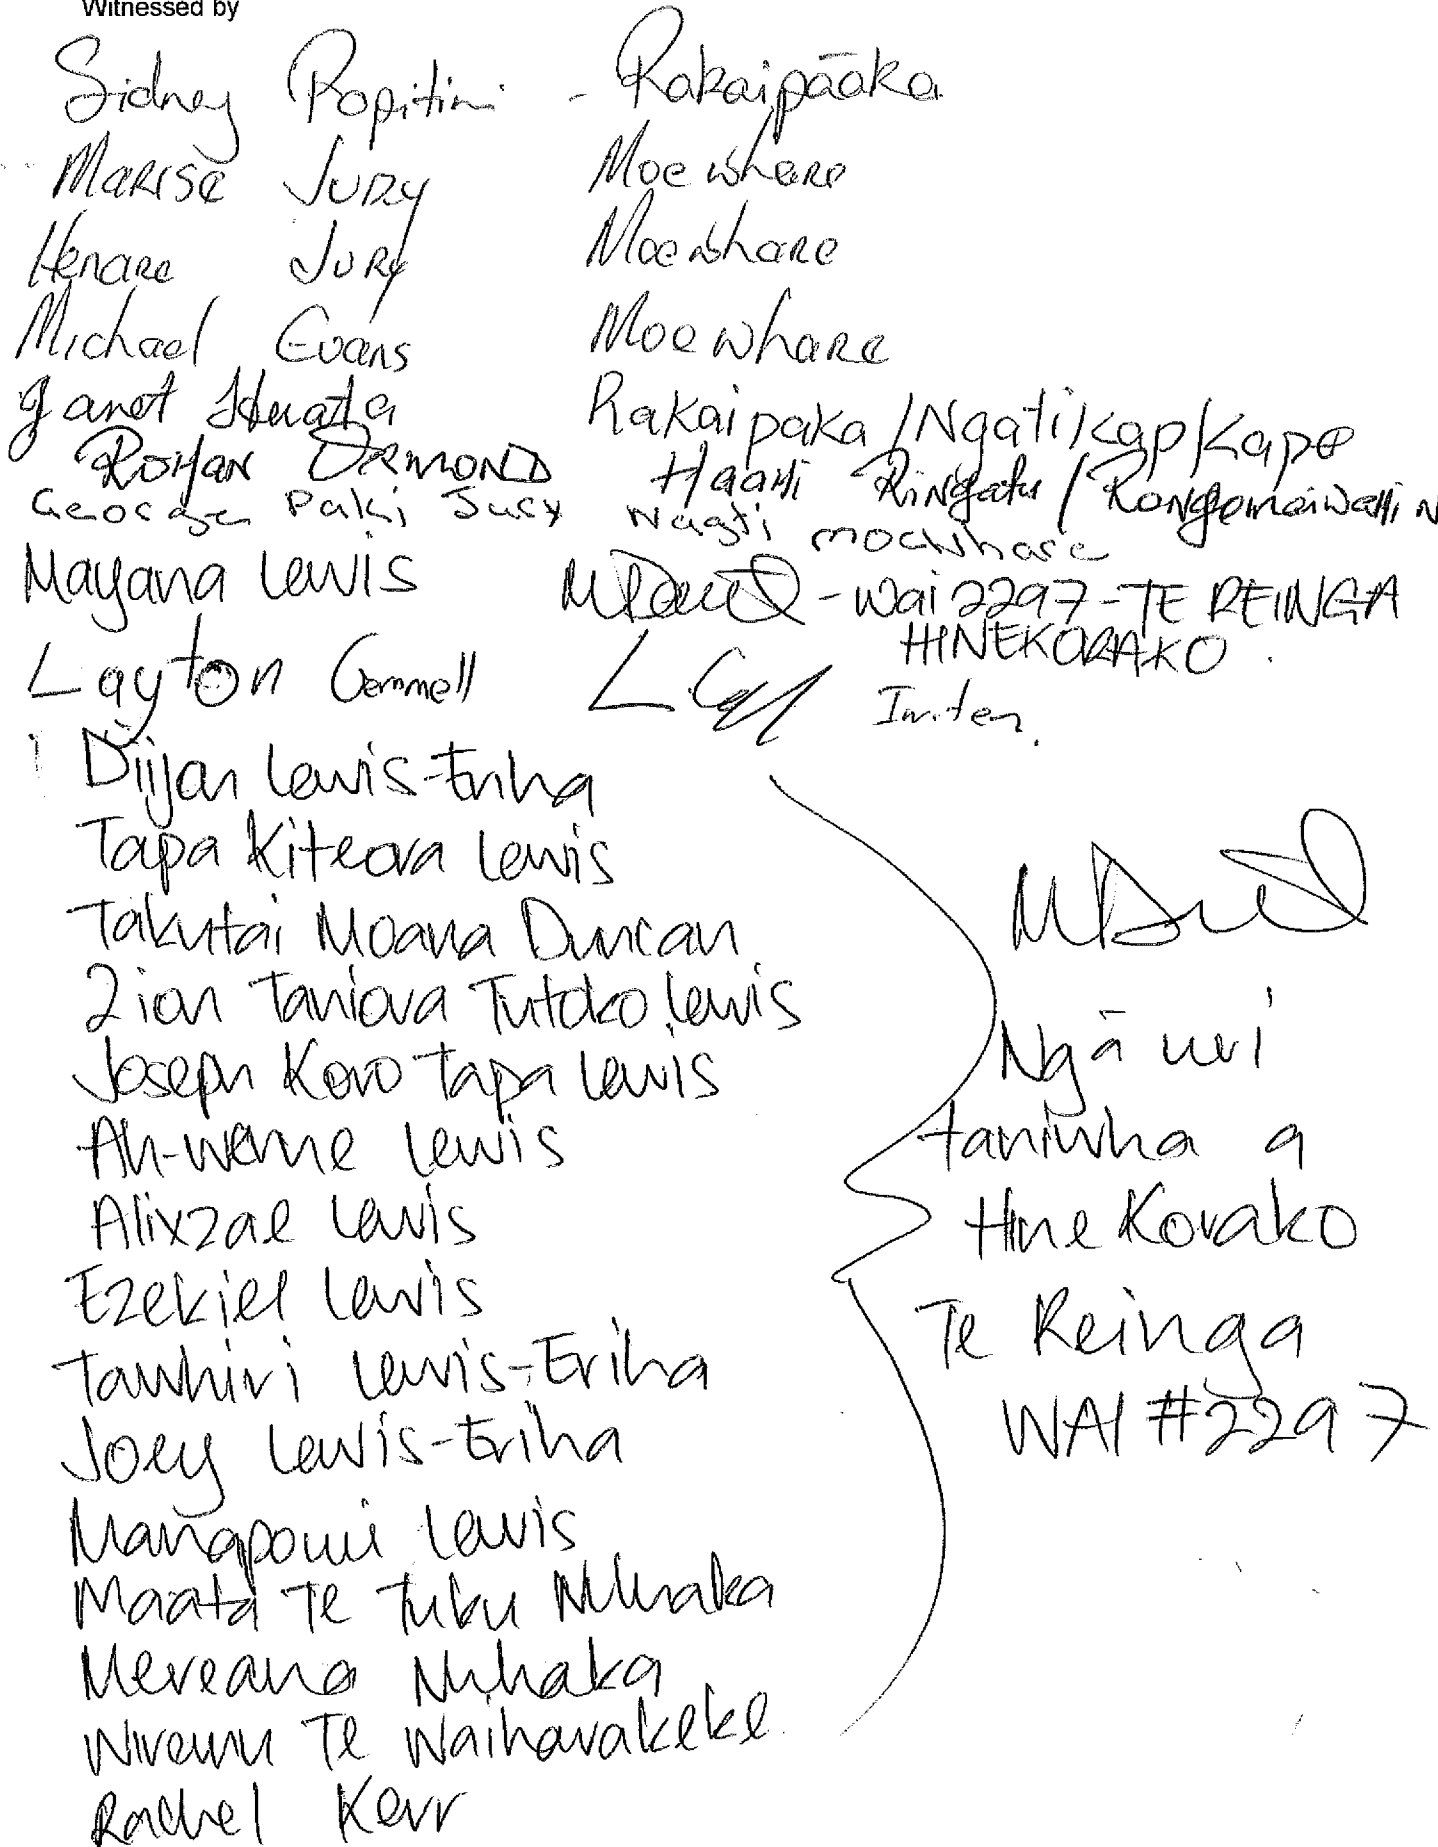 Witnessed by
Sidney Ropitini - Rakaipāaka
Marise Jury Moewhare
Henare Jury Moewhare
Michael Evans Moewhare
Janet Huata Rakaipaka / Ngati Kapkapo
ROHAN ORMOND HAAHI Ringatu / Rongomaiwahin
George Paki Jury Nagti moewhare
Mayana Lewis - wai 2297 - TE REINGA
HINEKORAKO.
Layton Gemmell
Diijan Lewis-Eriha
Tapa Kiteora Lewis
Takutai Moana Duncan
Zion Taniora Tutoko Lewis
Joseph Koro Tapa Lewis
Ah-werne Lewis
Alixzae Lewis
Ezekiel Lewis
Tawhiri Lewis-Eriha
Joey Lewis-Eriha
Lewis
Maata Te Tuku Nuhaka
Mereana Nuhaka
Wiremu Te Waiharakeke
Rachel Kerr
Ngā uri
taniwha a
Hine Korako
Te Reinga
WAI #2297